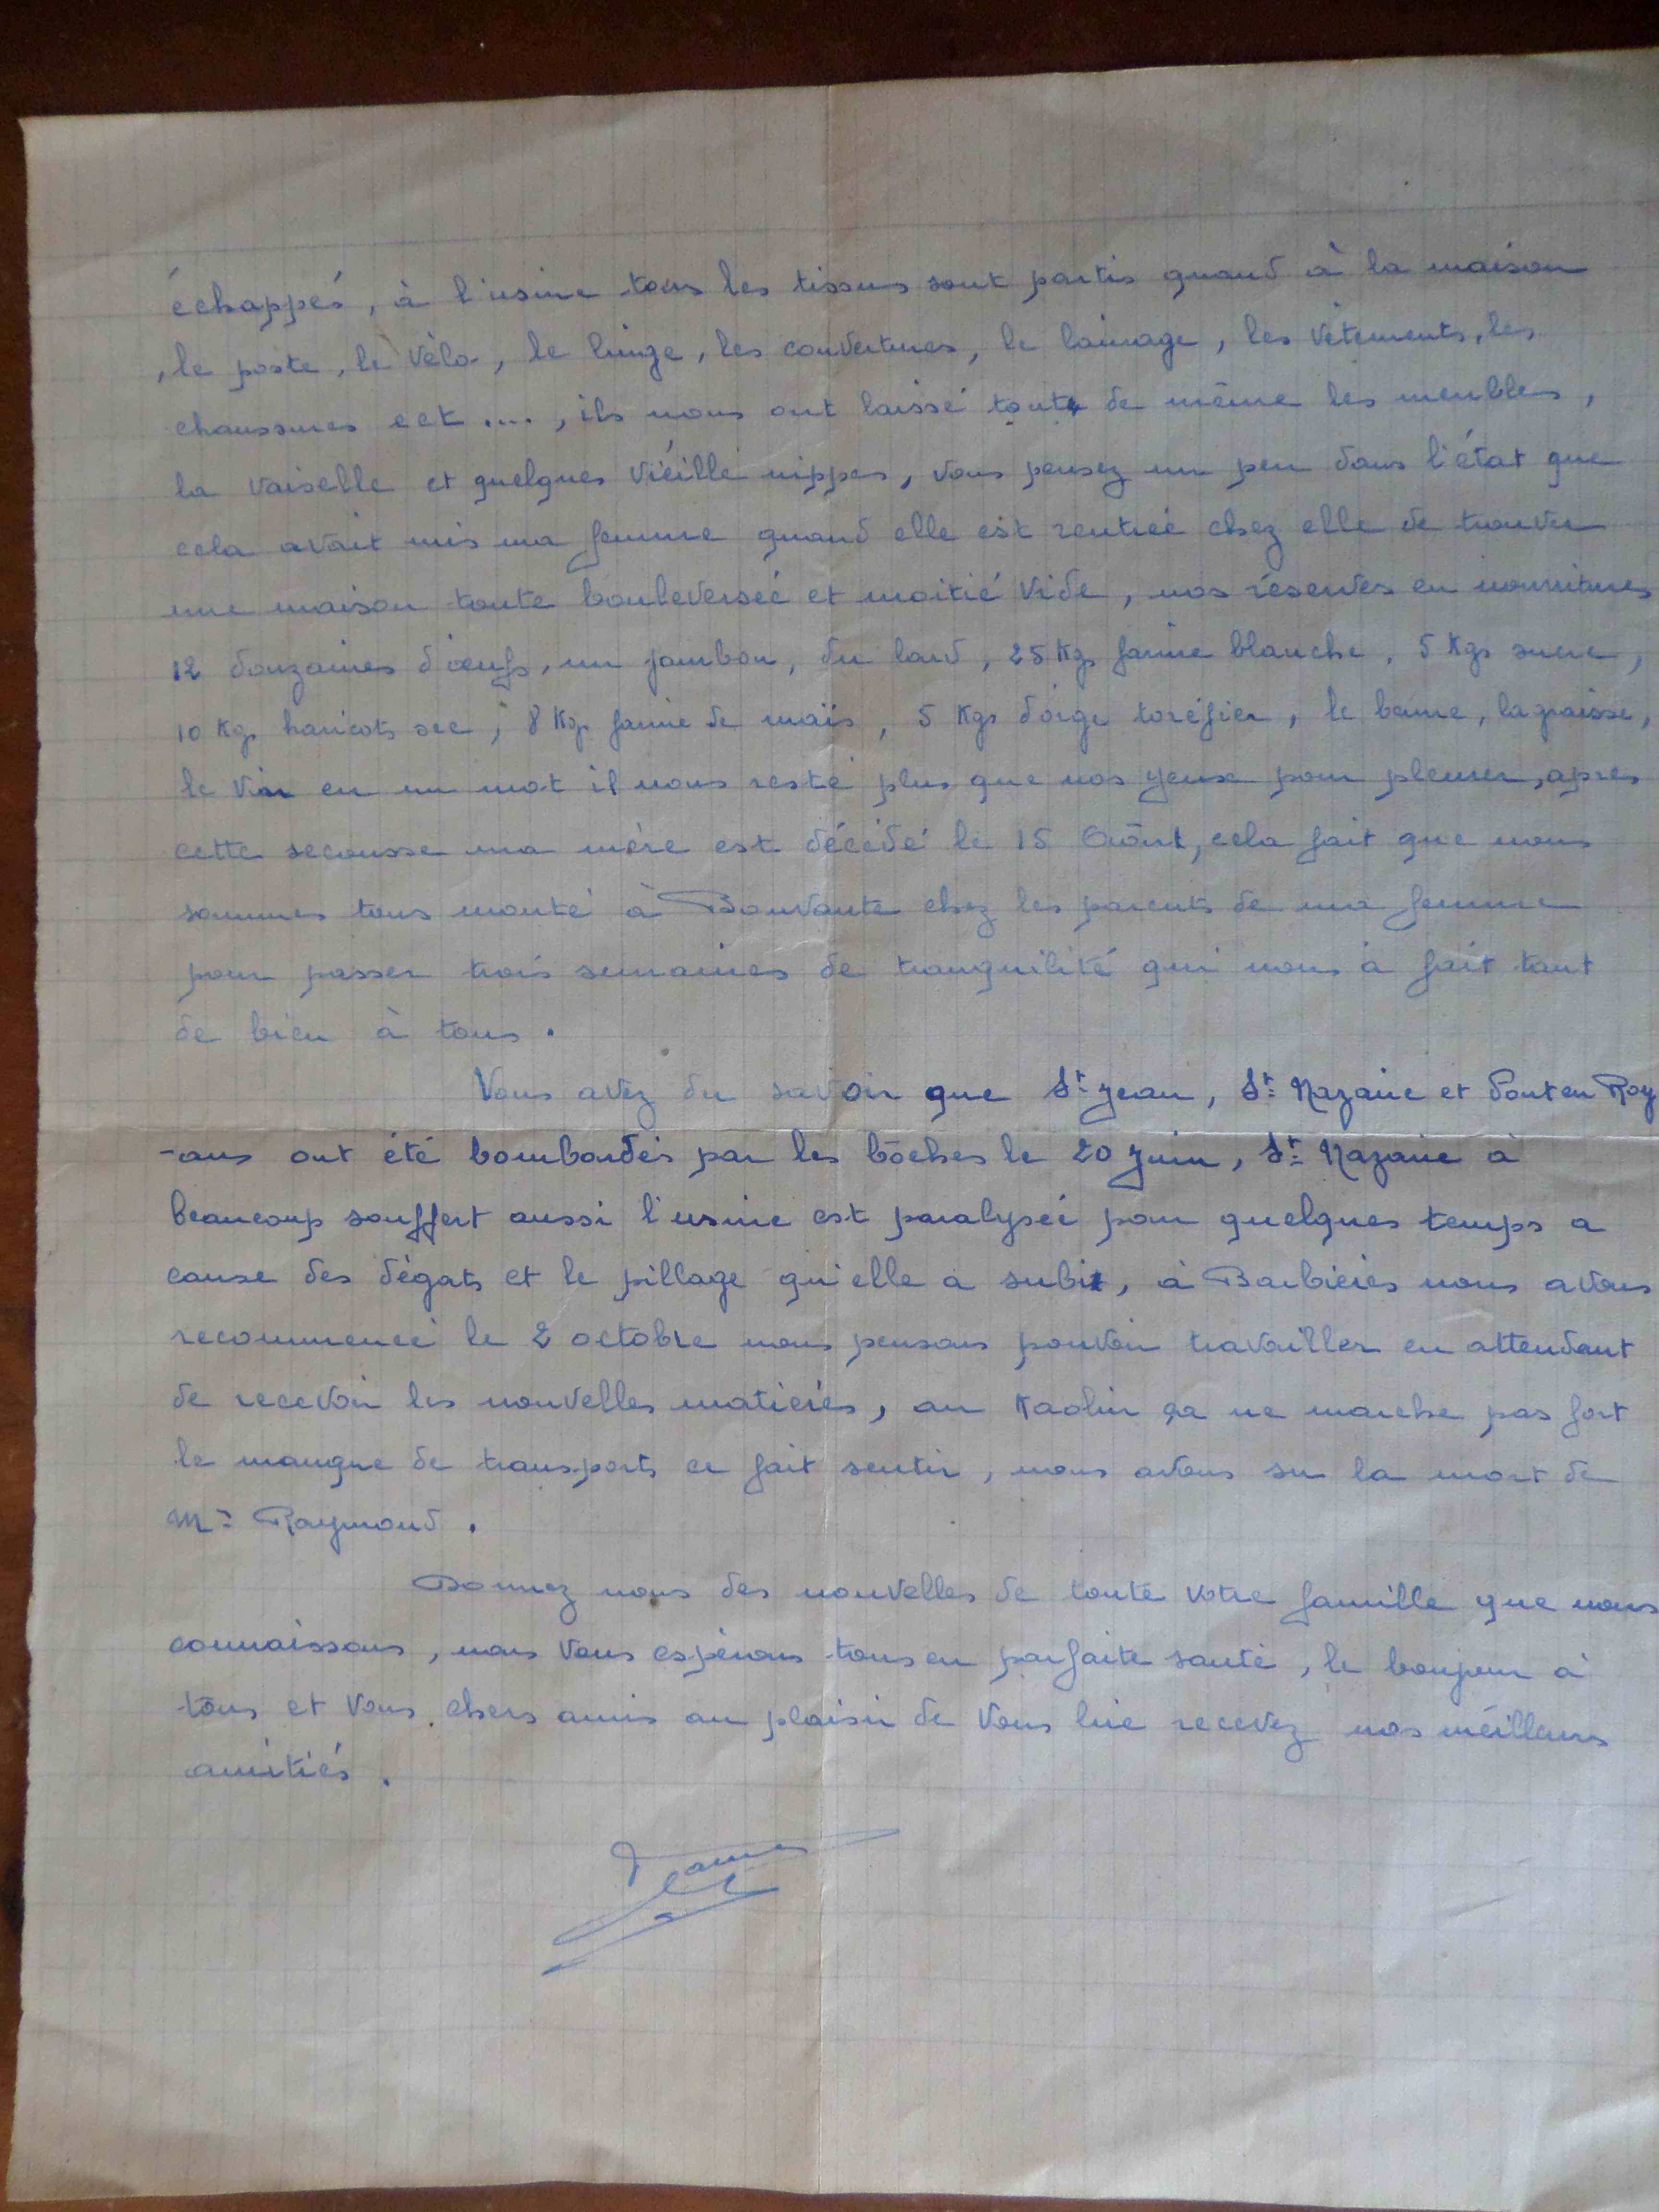 échappés, à l'usine tous les tissus sont partis quand à la maison
, le poste, le vélo, le linge, les couvertures, le lainage, les vêtements, les
chaussures ect ...., ils nous ont laissé toute de même les meubles,
la vaiselle et quelques vieille nippes, vous pensez un peu dans l'état que
cela avait mis ma femme quand elle est rentrée chez elle de trouver
une maison toute bouleversée et moitié vide, nos réserves en nourritures
12 douzaines d'œufs, un jambon, du lard, 25 Kgs farine blanche, 5 Kgs sucre,
10 Kgs haricots sec, 8 Kgs farine de maïs, 5 Kgs d'orge toréfier, le beurre, la graisse,
le vin en un mot il nous reste plus que nos yeux pour pleurer, apres
cette secousse ma mère est décédé le 15 Août, cela fait que nous
sommes tous monté à Bouvante chez les parents de ma femme
pour passer trois semaines de tranquilité qui nous à fait tant
de bien à tous.
Vous avez du savoir que St Jean, St Nazaire et Pont en Roy
-ans ont été bombardés par les bôches le 20 Juin, St Nazaire à
beaucoup souffert aussi l'usine est paralysée pour quelques temps a
cause des dégats et le pillage qu'elle a subit, à Barbières nous avons
recommencé le 2 octobre nous pensons pouvoir travailler en attendant
de recevoir les nouvelles matières, au Kaolin ça ne marche pas fort
le manque de transports ce fait sentir, nous avons su la mort de
Mr Raymond.
Donnez nous des nouvelles de toute votre famille que nous
connaissons, nous vous espérons tous en parfaite santé, le bonjour à
tous et vous, chers amis au plaisir de vous lire recevez nos meilleurs
amitiés.